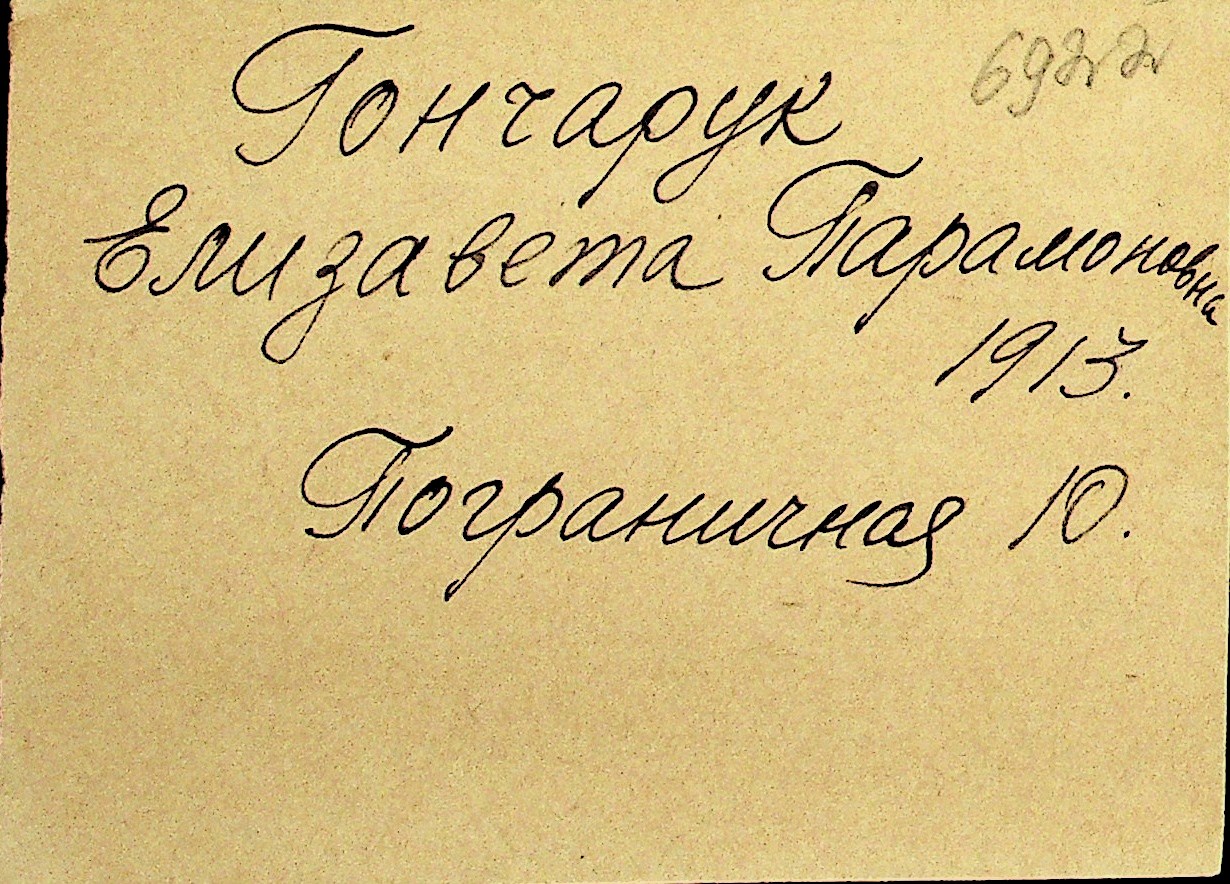 Гончарук
Елизавета Парамоновна
1913.
Пограничная 10.